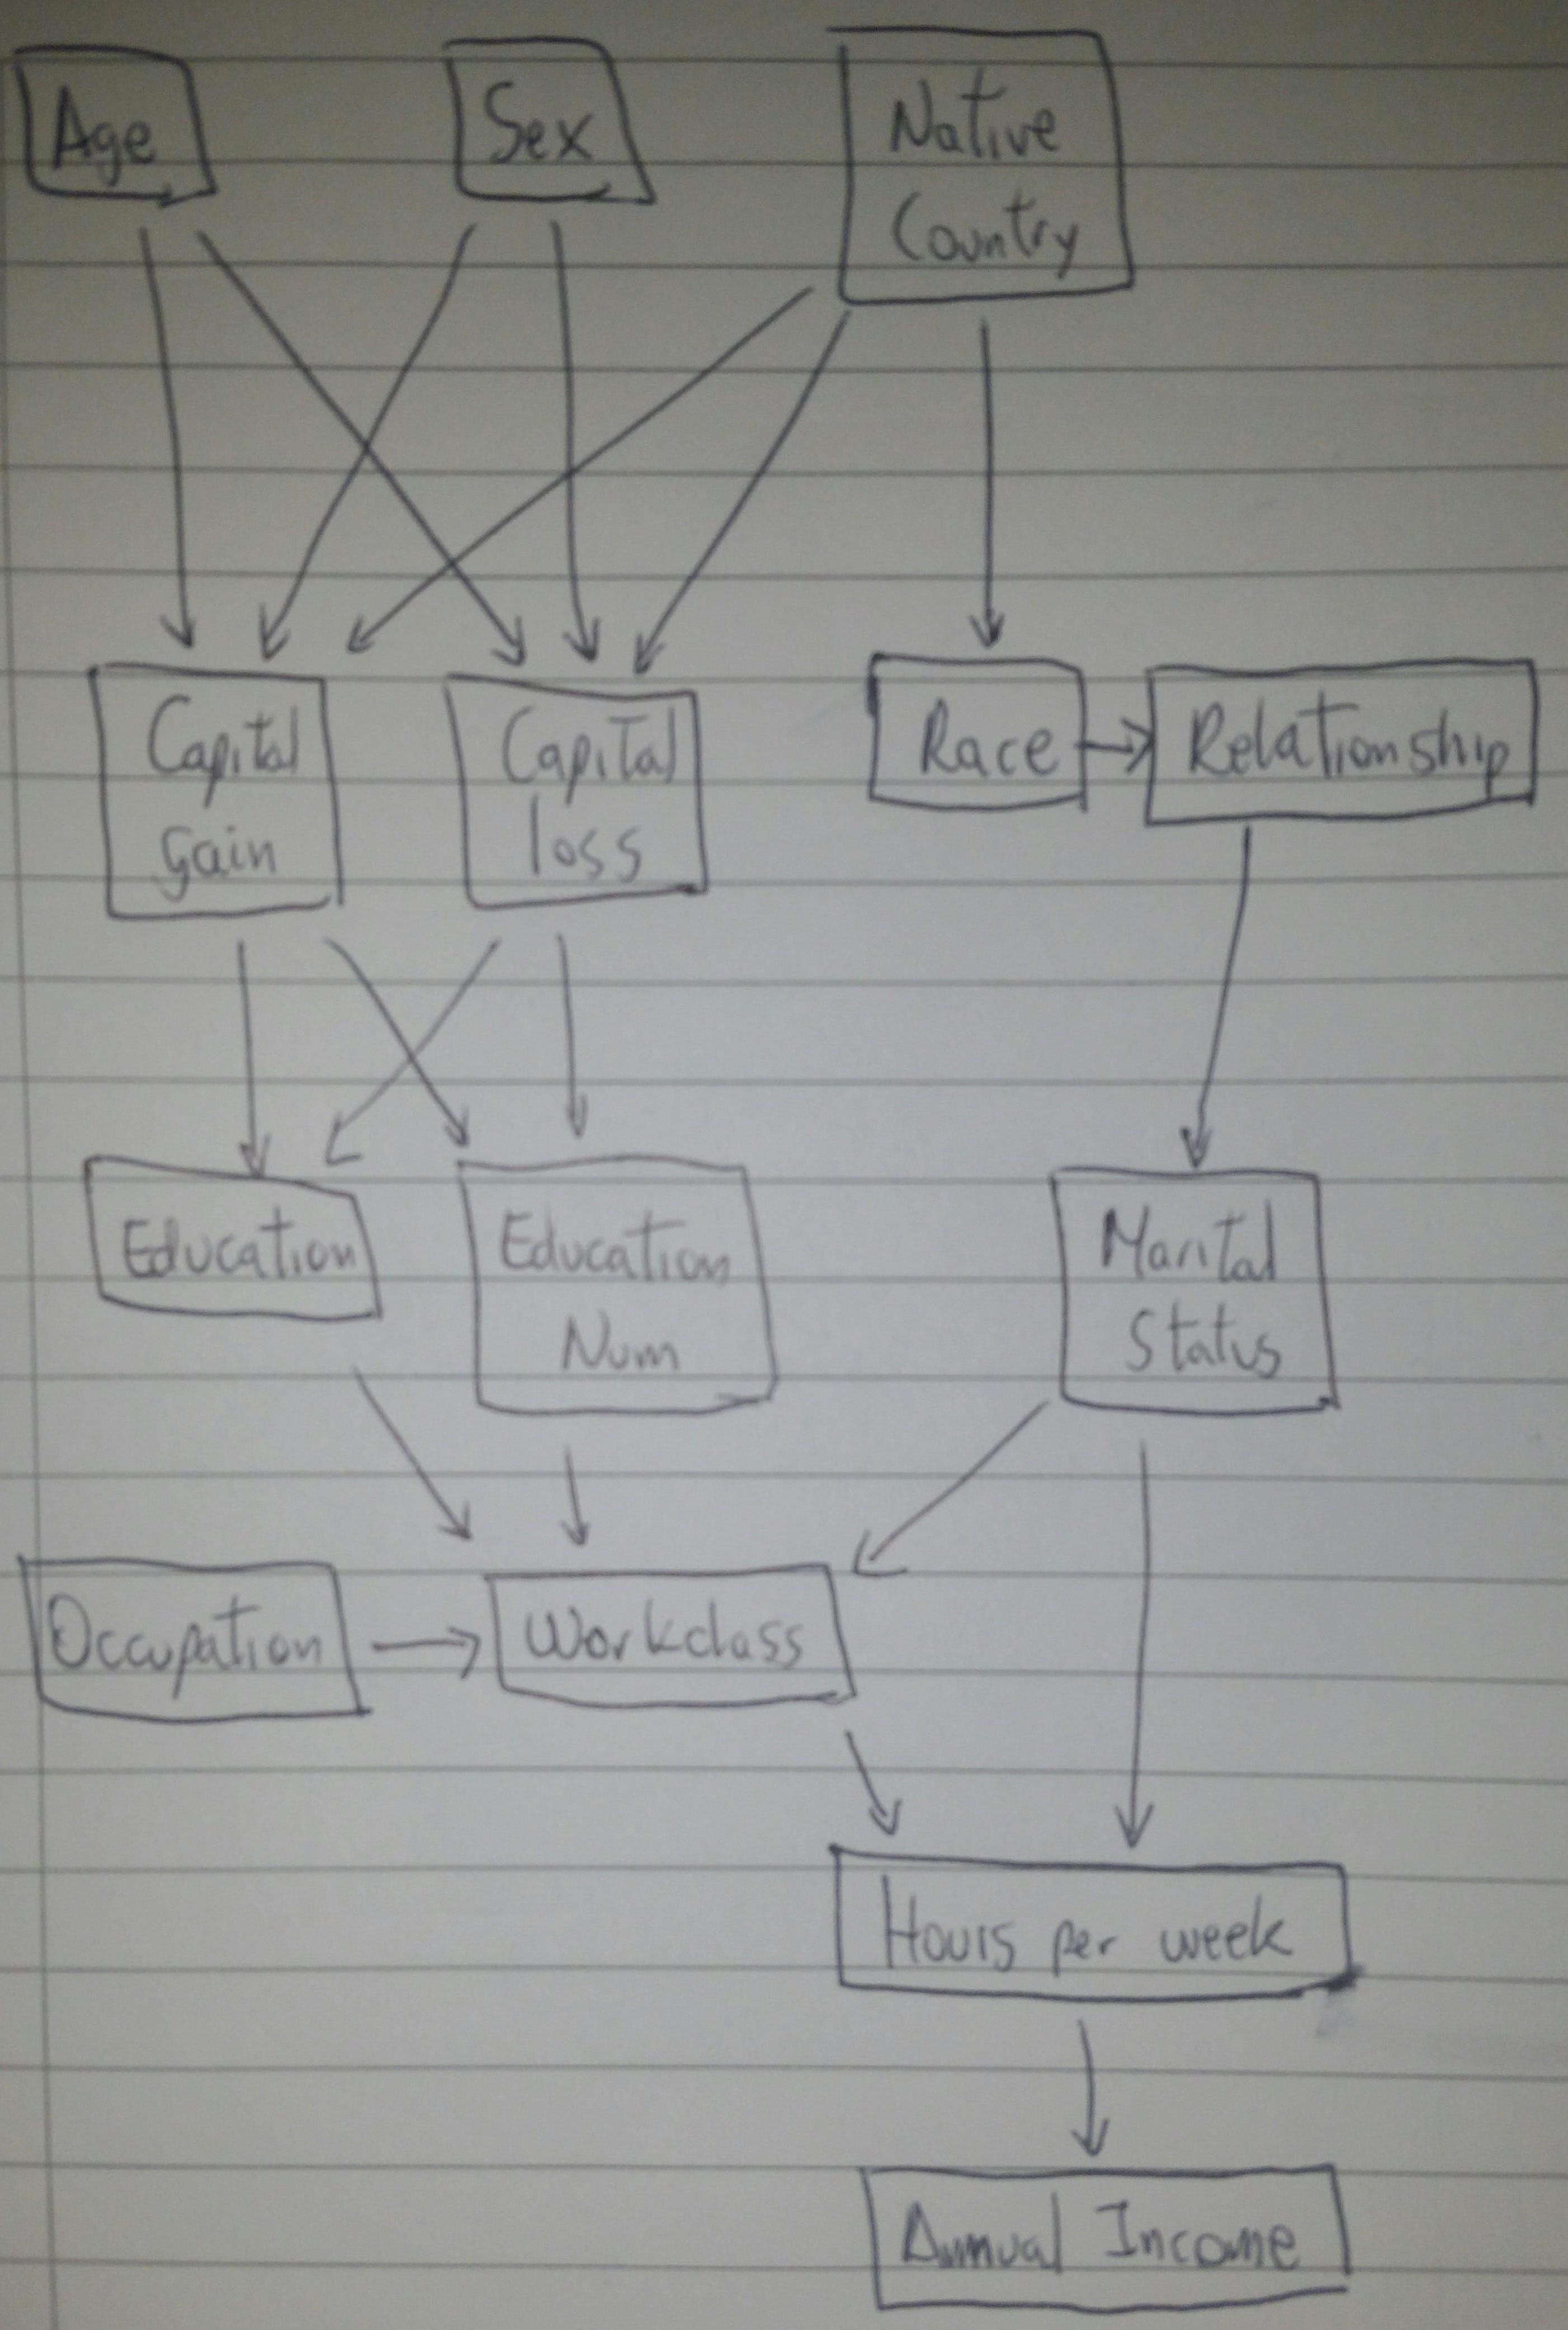 Age
Sex
Native
Country
Capital
gain
Capital
loss
Race
Relationship
Education
Education
Num
Marital
Status
Occupation
Workclass
Hours per week
Annual Income